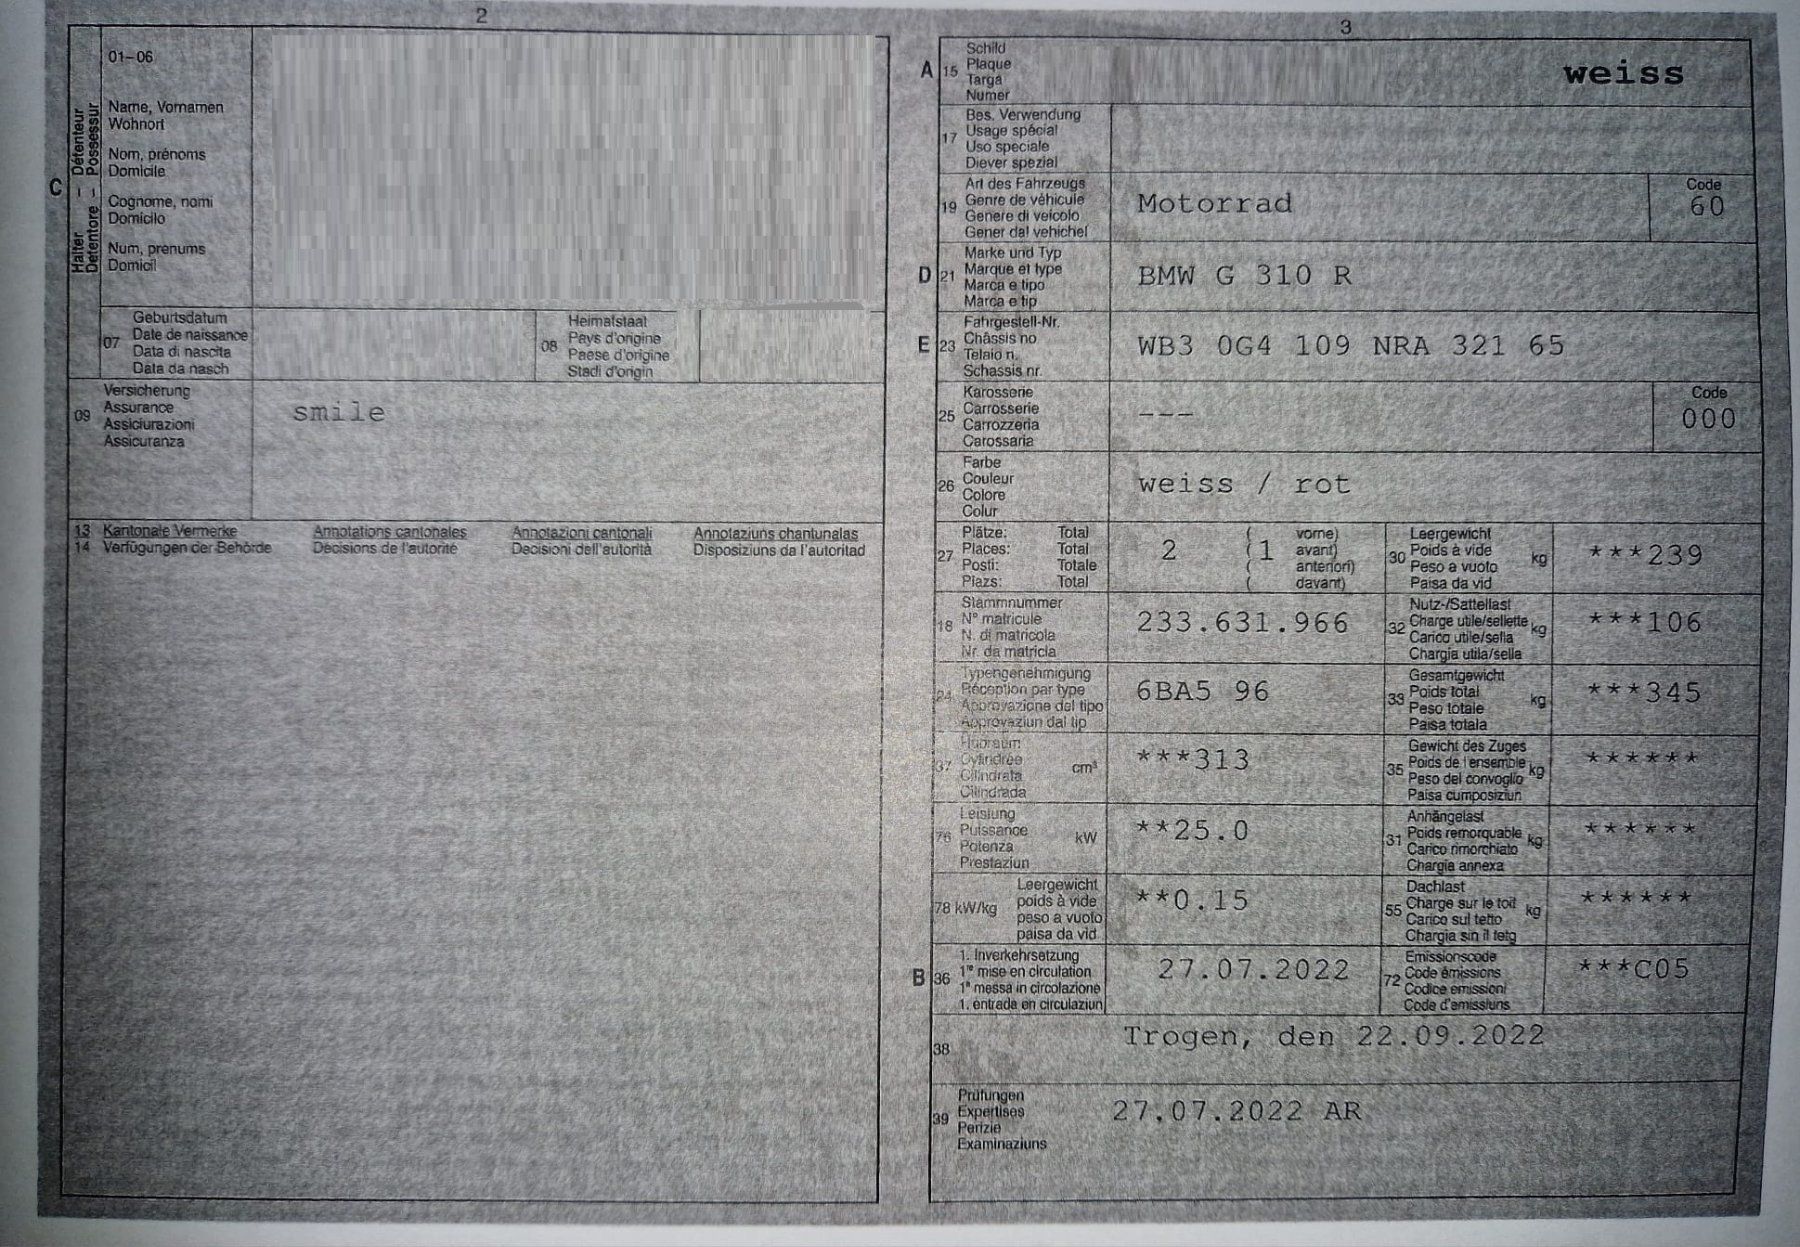 2
01–06
Name, Vornamen
Wohnort
Nom, prénoms
Domicile
Cognome, nomi
Domicilo
Num, prenums
Domicil
C
Halter – Détenteur
Detentore – Possessur
07
Geburtsdatum
Date de naissance
Data di nascita
Data da nasch
08
Heimatstaat
Pays d'origine
Paese d'origine
Stadi d'origin
09
Versicherung
Assurance
Assiciurazioni
Assicuranza
smile
13 Kantonale Vermerke Annotations cantonales Annotazioni cantonali Annotaziuns chantunalas
14 Verfügungen der Behörde Décisions de l'autorité Decisioni dell'autorità Disposiziuns da l'autoritad
3
A 15
Schild
Plaque
Targa
Numer
weiss
17
Bes. Verwendung
Usage spécial
Uso speciale
Diever spezial
19
Art des Fahrzeugs
Genre de véhicule
Genere di veicolo
Gener dal vehichel
Motorrad
Code
60
D 21
Marke und Typ
Marque et type
Marca e tipo
Marca e tip
BMW G 310 R
E 23
Fahrgestell-Nr.
Châssis no
Telaio n.
Schassis nr.
WB3 0G4 109 NRA 321 65
25
Karosserie
Carrosserie
Carrozzeria
Carossaria
---
Code
000
26
Farbe
Couleur
Colore
Colur
weiss / rot
27
Plätze: Total
Places: Total
Posti: Totale
Plazs: Total
2 (1
( vorne)
( avant)
( anteriori)
( davant)
30
Leergewicht
Poids à vide
Peso a vuoto
Paisa da vid
kg
***239
18
Stammnummer
N° matricule
N. di matricola
Nr. da matricla
233.631.966
32
Nutz-/Sattellast
Charge utile/sellette
Carico utile/sella
Chargia utila/sella
kg
***106
24
Typengenehmigung
Réception par type
Approvazione del tipo
Approvaziun dal tip
6BA5 96
33
Gesamtgewicht
Poids total
Peso totale
Paisa totala
kg
***345
37
Hubraum
Cylindrée
Cilindrata
Cilindrada
cm³
***313
35
Gewicht des Zuges
Poids de l'ensemble
Peso del convoglio
Paisa cumposiziun
kg
******
76
Leistung
Puissance
Potenza
Prestaziun
kW
**25.0
31
Anhängelast
Poids remorquable
Carico rimorchiato
Chargia annexa
kg
******
78 kW/kg
Leergewicht
poids à vide
peso a vuoto
paisa da vid
**0.15
55
Dachlast
Charge sur le toit
Carico sul tetto
Chargia sin il tetg
kg
******
B 36
1. Inverkehrsetzung
1re mise en circulation
1a messa in circolazione
1. entrada en circulaziun
27.07.2022
72
Emissionscode
Code émissions
Codice emissioni
Code d'emissiuns
***C05
38
Trogen, den 22.09.2022
39
Prüfungen
Expertises
Perizie
Examinaziuns
27.07.2022 AR